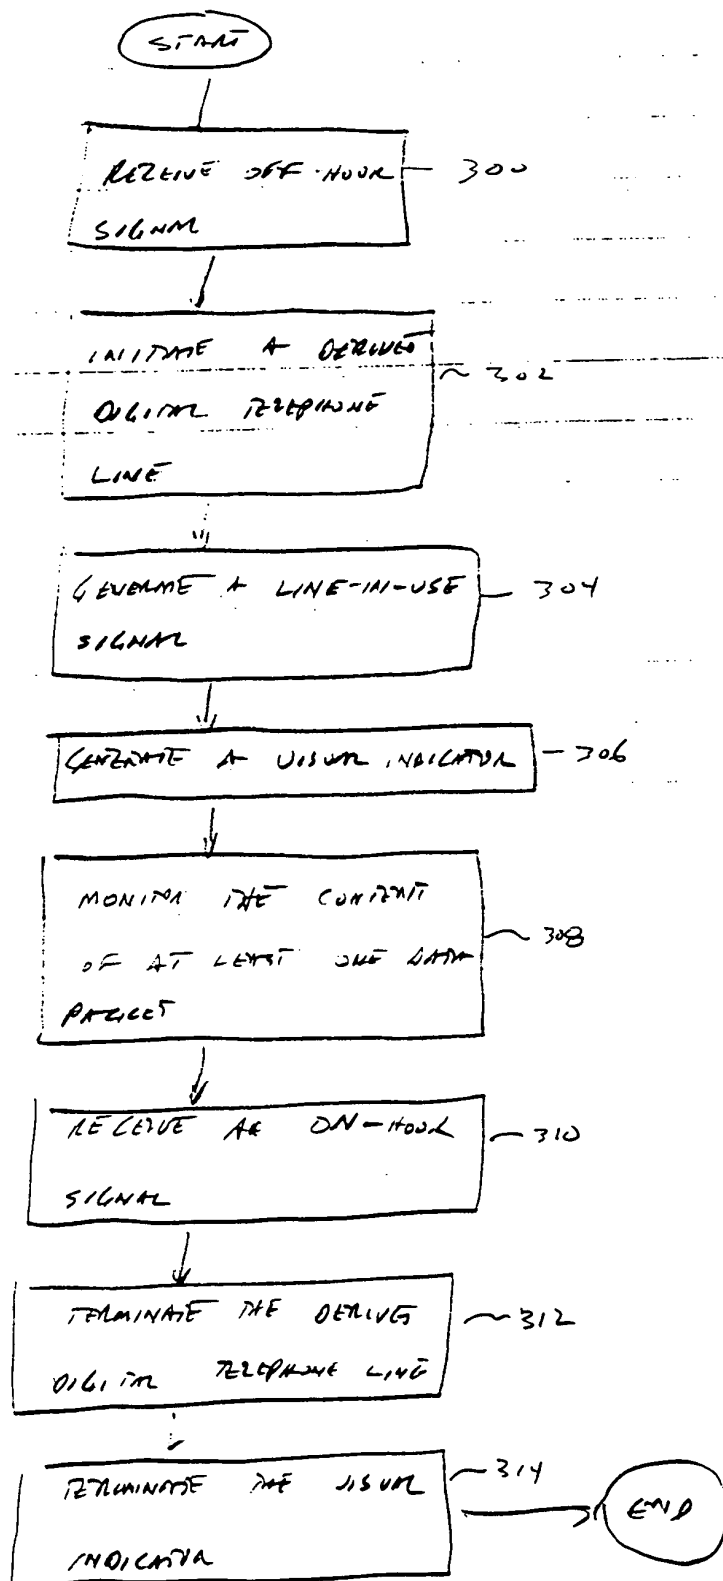 START
RECEIVE OFF-HOOK
300
SIGNAL
INITIATE A DERIVED
302
DIGITAL TELEPHONE
LINE
GENERATE A LINE-IN-USE
304
SIGNAL
GENERATE A VISUAL INDICATOR
306
MONITOR THE CONTENT
308
OF AT LEAST ONE DATA
PACKET
RECEIVE AN ON-HOOK
310
SIGNAL
TERMINATE THE DERIVED
312
DIGITAL TELEPHONE LINE
TERMINATE THE VISUAL
314
INDICATOR
END